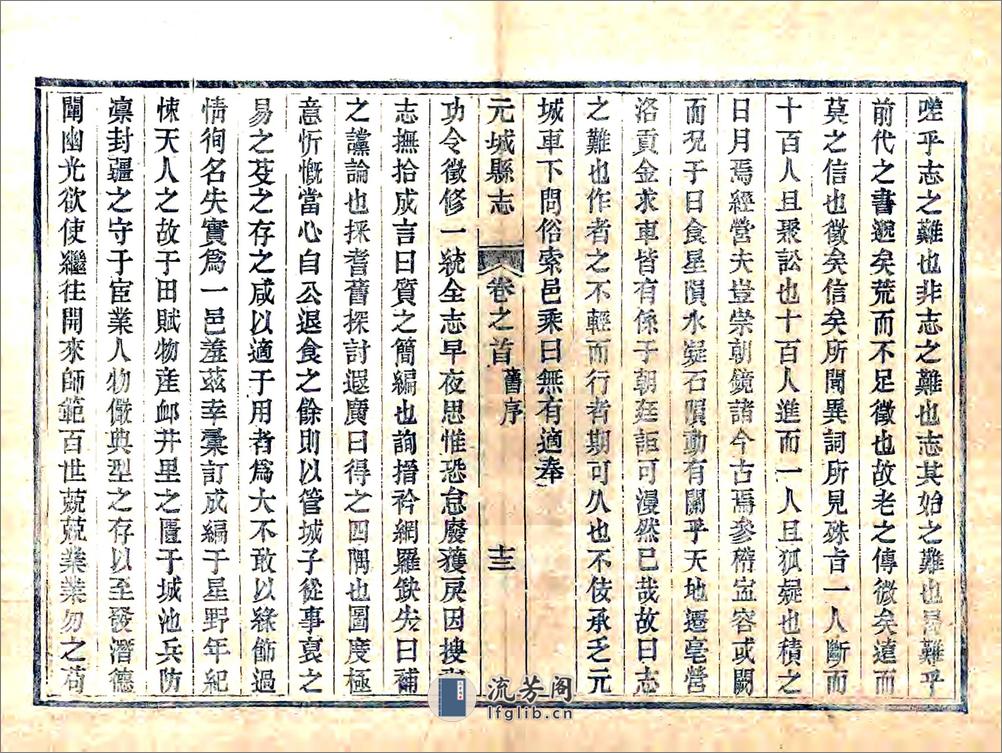 嗟乎志之難也非志之難也志其始之難也曷難乎
前代之書邈矣荒而不足徵也故老之傳微矣遠而
莫之信也徵矣信矣所聞異詞所見殊旨一人斷而
十百人且聚訟也十百人進而一人且狐疑也積之
日月焉經營夫豈崇朝鏡諸今古焉參稽寍容或闕
而況于日食星隕水凝石隕動有關乎天地遷亳營
洛貢金求車皆有係于朝廷詎可漫然已哉故曰志
之難也作者之不輕而行者期可久也不佞承乏元
城車下問俗索邑乘曰無有適奉
元城縣志 卷之首 舊序 十三
功令徵修一統全志早夜思惟恐怠廢獲戾因搜
志撫拾成言曰質之簡編也詢搢衿網羅缺失曰補
之讜論也採耆舊探討遐廣曰得之四隅也圖度極
意忻慨當心自公退食之餘則以管城子從事裒之
易之芟之存之咸以適于用者為大不敢以綠飾過
情徇名失實為一邑羞茲幸彙訂成編于星野年紀
悚天人之故于田賦物產卹井里之匱于城池兵防
凛封疆之守于宦業人物儼典型之存以至發潛德
闡幽光欲使繼往開來師範百世兢兢業業勿之苟
流芳阁
lfglib.cn